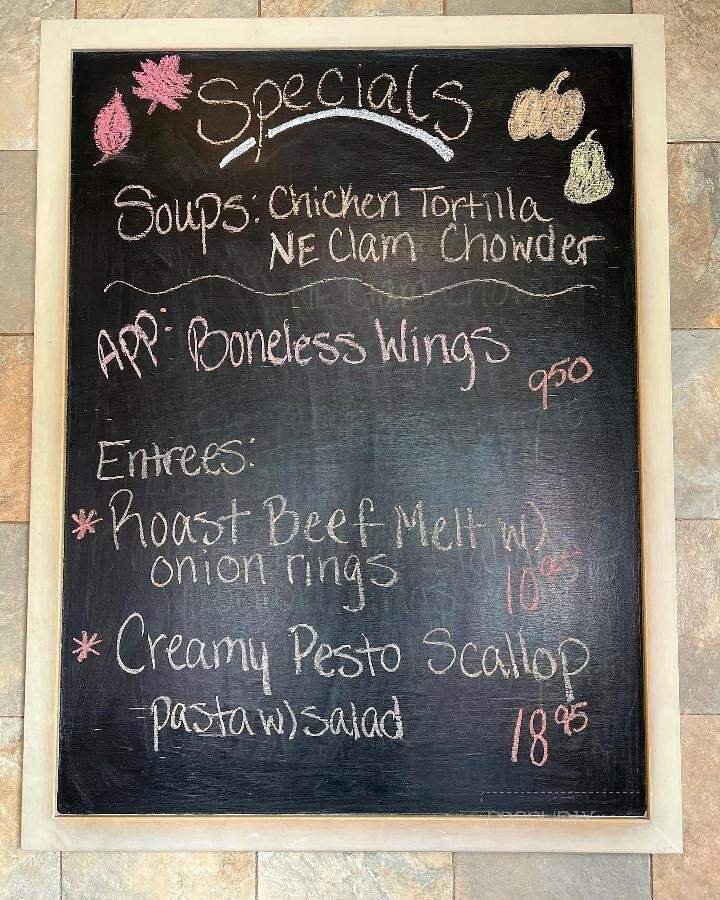 Specials
Soups: Chicken Tortilla
NE Clam Chowder
APP: Boneless Wings
950
Entrees:
* Roast Beef Melt w)
onion rings
10 95
* Creamy Pesto Scallop
pasta w) salad
18 95